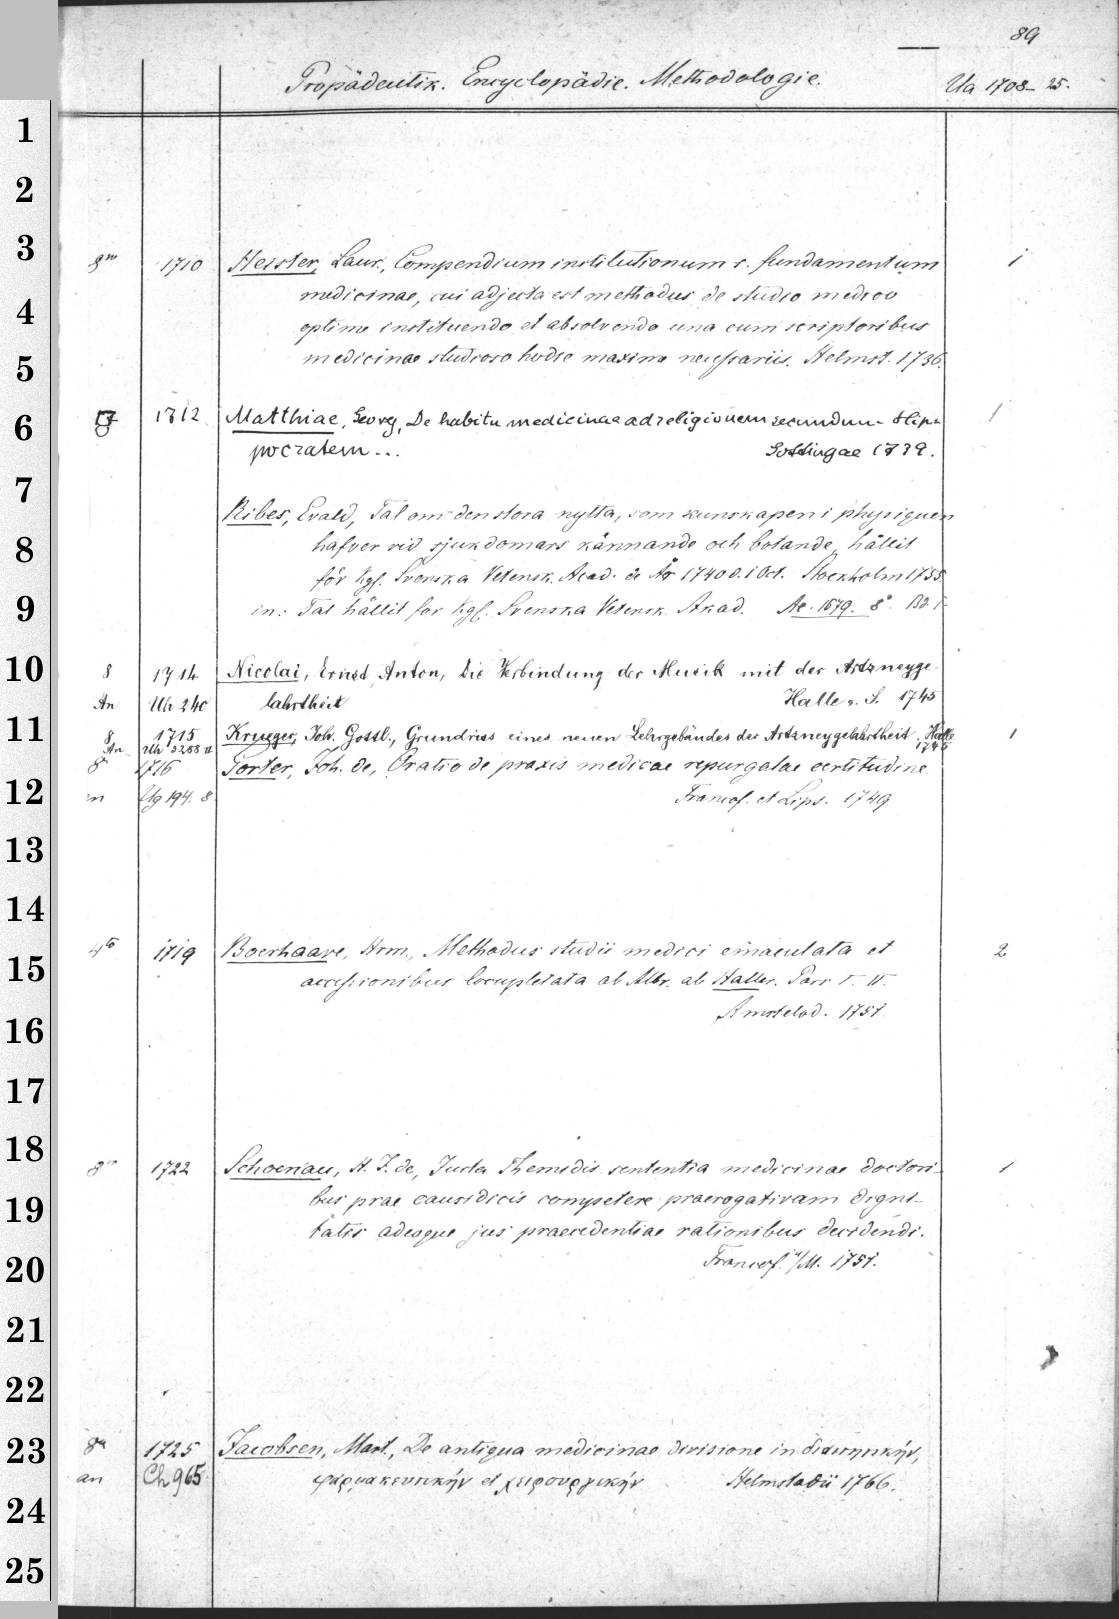 89
Propädeutik. Encyclopädie. Methodologie. Ua 1708-25.
1
2
3
8vo 1710 Heister, Laur., Compendium institutionum s. fundamentum 1
medicinae, cui adjecta est methodus de studio medico
4
optime instituendo et absolvendo una cum scriptoribus
5
medicinae studioso hodie maxime necessariis. Helmst. 1736.
6
8 1712 Matthiae, Georg, De habitu medicinae ad religionem secundum Hip- 1
pocratem... Gottingae 1739.
7
Ribes, Evald, Tal om den stora nytta, som kunskapen i physiquen
8
hafver vid sjukdomars kännande och botande, hållit
för Kgl. Svenska Vetensk. Acad. år 1740 d. 1 Oct. Stockholm 1755.
9
in: Tal hållit för Kgl. Svenska Vetensk. Akad. Ae. 1679. 8° Bd I.
10
8 1714 Nicolai, Ernst Anton, Die Verbindung der Musik mit der Artzneyge-
An Uh 240 lahrtheit Halle a. S. 1745
11
8 1715 Krueger, Joh. Gottl., Grundriss eines neuen Lehrgebäudes der Artzneygelahrtheit. Halle 1
An Uh 3288 1745
8° 1716 Gorter, Joh. de, Oratio de praxis medicae repurgatae certitudine
12
in Ug 194. 8 Francof. et Lips. 1749
13
14
4to 1719 Boerhaave, Hrm., Methodus studii medici emaculata et 2
15
accessionibus locupletata ab Alb. ab Haller. Pars I. II.
Amstelod. 1751.
16
17
18
8vo 1722 Schoenau, H. J. de, Justa Themidis sententia medicinae doctori- 1
19
bus prae causidicis competere praerogativam digni-
tatis adeoque jus praecedentiae rationibus decidendi.
20
Francof. a/M. 1751.
21
22
23
8o 1725 Jacobsen, Mart., De antiqua medicinae divisione in διαιτητικήν,
an Ch 965 φαρμακευτικήν et χειρουργικήν Helmstadii 1766.
24
25